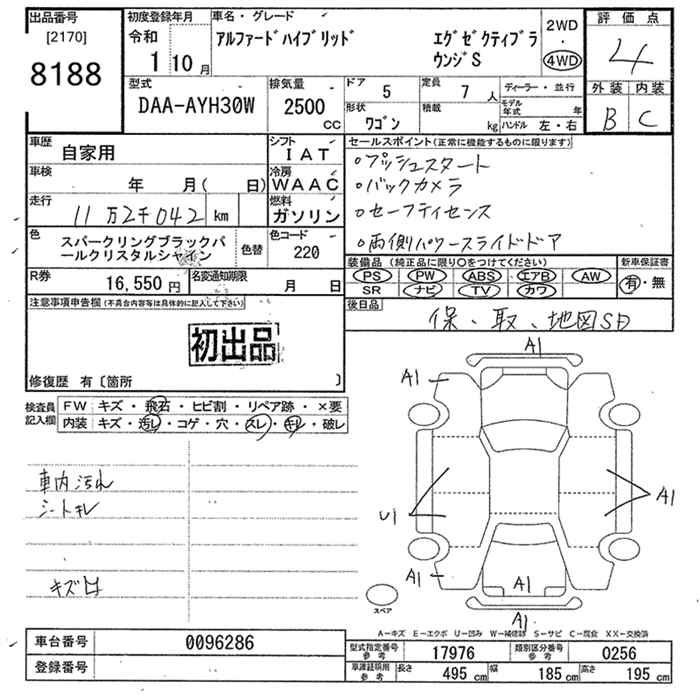 出品番号
[2170]
8188
初度登録年月
令和
1 10月
車名・グレード
アルファードハイブリッド エグゼクティブラウンジS
2WD
・
4WD
評価点
4
外装 内装
B C
型式
DAA-AYH30W
排気量
2500
CC
ドア 5
定員 7 人
形状 ワゴン
積載 kg
ディーラー・並行
モデル年式 年
ハンドル 左・右
車歴 自家用
シフト IAT
車検 年 月( 日)
冷房 WAAC
走行 11万2千042 km
燃料 ガソリン
色 スパークリングブラックパールクリスタルシャイン
色替
色コード 220
R券 16,550円
名変通知期限 月 日
セールスポイント(正常に機能するものに限ります)
○プッシュスタート
○バックカメラ
○セーフティセンス
○両側パワースライドドア
装備品(純正品に限り○をつけてください)
PS PW ABS エアB AW
SR ナビ TV カワ
新車保証書
有・無
後日品
保、取、地図SD
注意事項申告欄(不具合内容等は具体的に記入して下さい)
初出品
修復歴 有〔箇所 〕
検査員記入欄
FW キズ・飛石・ヒビ割・リペア跡・×要
内装 キズ・汚レ・コゲ・穴・スレ・キレ・破レ
車内汚れ
シートキレ
A1
A1
U1
A1
A1
A1
A1
スペア
A-キズ E-エクボ U-凹み W-補修跡 S-サビ C-腐食 XX-交換済
車台番号 0096286
登録番号
型式指定番号参考 17976
類別区分番号参考 0256
車庫証明用参考 長さ 495cm 幅 185cm 高さ 195cm